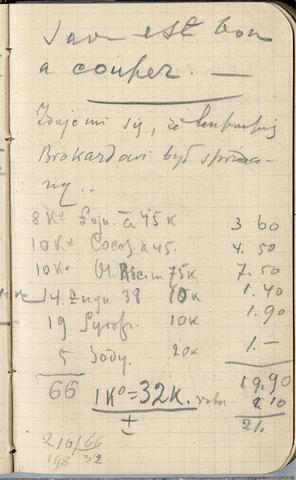 Savon est bon
a couper. —
Zdaje mi się, że
Brokardowi był
ny..
8 Ko Łoju. à 45 K 3 60
10 Ko Cocos à 45. 4. 50
10 Ko Ol. Ricin 75 K 7. 50
14. Ługu 38 10 K 1. 40
19 Syrop. 10 K 1. 90
5 Sody. 20 K 1. —
66 19.90
1 Ko = 32 K. 2 10
± 21.
210/66
198 32